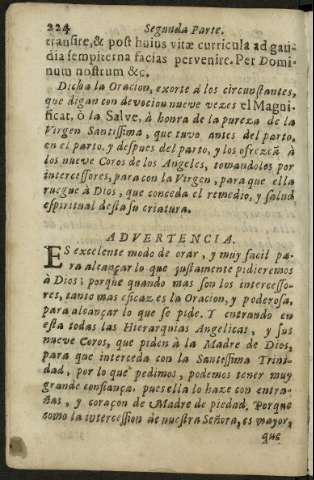 224 Segunda Parte.
transire, & post huius vitæ curricula ad gau-
dia sempiterna facias pervenire. Per Domi-
num nostrum &c.
Dicha la Oracion, exorte à los circunstantes,
que digan con devocion nueve vezes el Magni-
ficat, ò la Salve, à honra de la pureza de la
Virgen Santissima, que tuvo antes del parto,
en el parto, y despues del parto, y los ofrezcã à
los nueve Coros de los Angeles, tomandolos por
intercessores, para con la Virgen, para que ella
ruegue à Dios, que conceda el remedio, y salud
espiritual desta su criatura.
ADVERTENCIA.
ES excelente modo de orar, y muy facil pa-
ra alcançar lo que justamente pidieremos
à Dios; porque quando mas son los intercesso-
res, tanto mas eficaz es la Oracion, y poderosa,
para alcançar lo que se pide. Y entrando en
esta todas las Hierarquias Angelicas, y sus
nueve Coros, que piden à la Madre de Dios,
para que interceda con la Santissima Trini-
dad, por lo que pedimos, podemos tener muy
grande confiança, pues ella lo haze con entra-
ñas, y coraçon de Madre de piedad. Porque
como la intercession de nuestra Señora, es mayor,
que